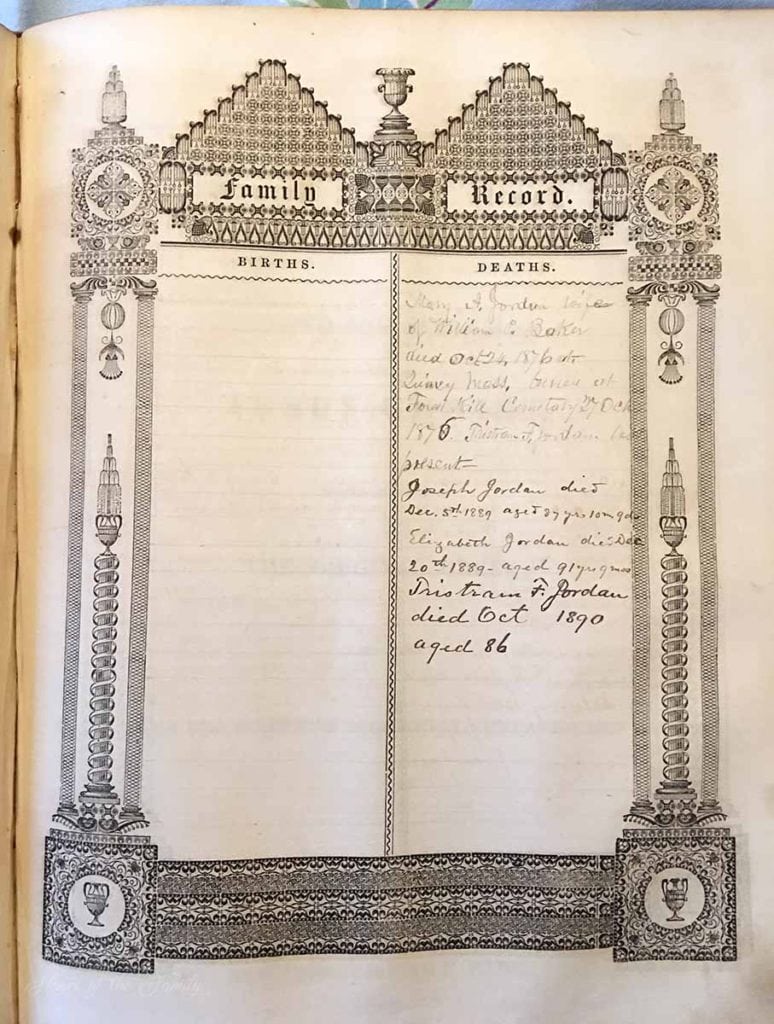 Family Record.
BIRTHS.
DEATHS.
Mary A. Jordan wife
of William C. Baker
died Oct 24, 1876 at
Quincy Mass. buried at
Forest Hill Cemetary 27 Oct
1876. Tristram F. Jordan
present—
Joseph Jordan died
Dec. 5th 1889 aged 87 yrs 10m 9d
Elizabeth Jordan died Dec
20th 1889 - aged 91 yrs 9 mos
Tristram F. Jordan
died Oct 1890
aged 86
of the Family